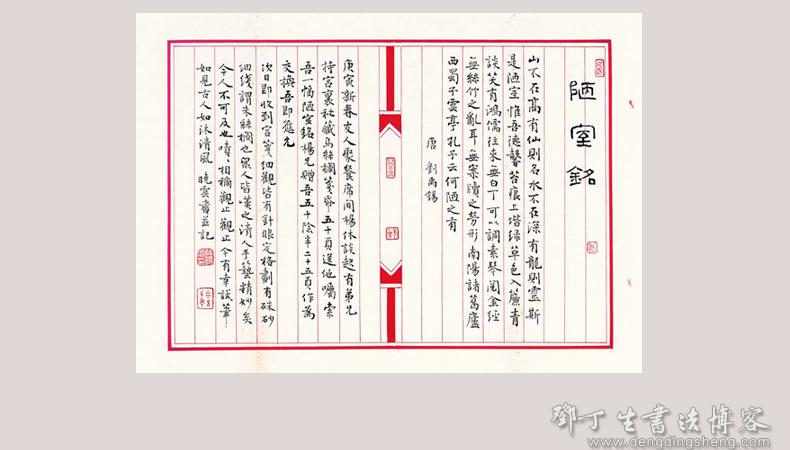 陋室銘
山不在高有仙則名水不在深有龍則靈斯
是陋室惟吾德馨苔痕上堦緑草色入簾青
談笑有鴻儒往來無白丁可以調素琴閱金經
無絲竹之亂耳無案牘之勞形南陽諸葛廬
西蜀子雲亭孔子云何陋之有
唐 劉禹錫
庚寅新春友人聚餐席間楊休談起有弟兄
持宫裏秘藏烏絲欄箋紙五十頁送他囑索
吾一幅陋室銘楊兄贈吾五十陰年二十五頁作為
交換吾即應允
次日即收到宫箋細觀皆有針眼定格劃有硃砂
細綫謂朱絲欄也眾人皆嘆之清人手藝精妙矣
令人不可及也嘖嘖相稱觀止觀止今有幸試筆
如見古人如沐清風 曉雲齋並記
鄧丁生書法博客
www.dengdingsheng.com